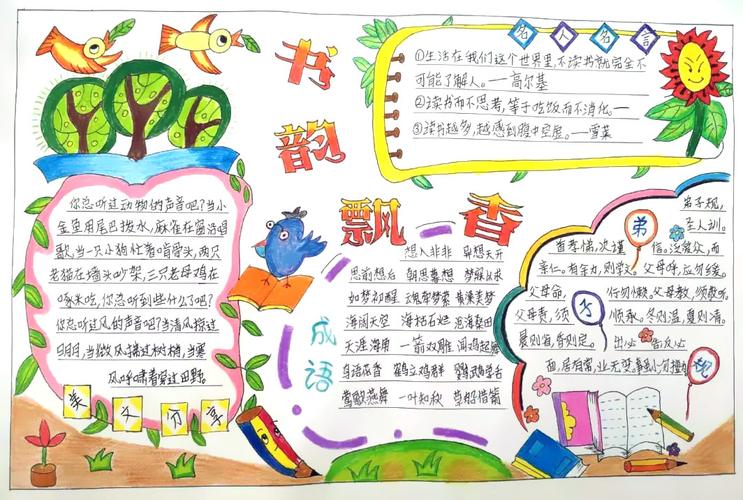 书韵飘香
名人名言
①生活在我们这个世界里,不读书就完全不
可能了解人。—高尔基
②读书而不思考,等于吃饭而不消化。—
③读书越多,越感到腹中空虚。—雪莱
你总听过动物们的声音吧?当小
金鱼用尾巴拨水,麻雀在窗沿唱
歌,当一只小狗忙着啃骨头,两只
老猫在墙头吵架,三只老母鸡在
啄米吃,你总听到些什么了吧?
你总听过风的声音吧?当清风掠过
当微风拂过树梢,当寒
风呼啸着穿过田野。
美文分享
成语
想入非非 异想天开
思前想后 朝思暮想 梦寐以求
如梦初醒 魂牵梦萦 黄粱美梦
海阔天空 海枯石烂 沧海桑田
天涯海角 一箭双雕 闻鸡起舞
鹤立鸡群 鹦鹉学舌
莺歌燕舞 一叶知秋 草船借箭
弟子规
弟子规,
圣人训。
首孝悌,次谨信。泛爱众,而
亲仁。有余力,则学文。父母呼,应勿缓。
父母命,行勿懒。父母教,须敬听。
父母责,须顺承。冬则温,夏则凊。
晨则省,昏则定。出必告,反必
面,居有常,业无变。事虽小,勿擅为